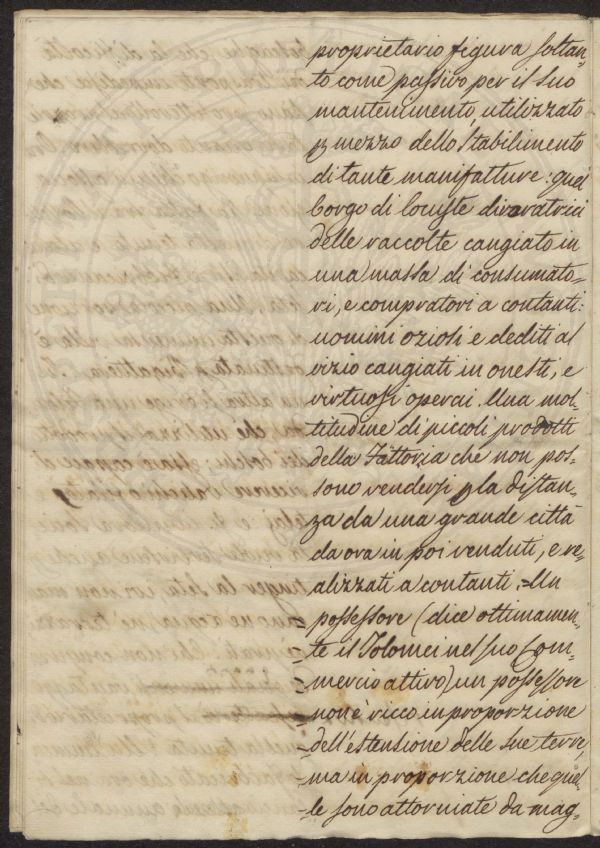 proprietario figura soltan-
to come passivo per il suo
mantenimento, utilizzato
p mezzo dello Stabilimento
di tante manifatture: quel
borgo di locuste divoratrici
delle raccolte cangiato in
una massa di consumato-
ri, e compratori a contanti:
uomini oziosi e dediti al
vizio cangiati in onesti, e
virtuosi operai. Una mol-
titudine di piccoli prodotti
della Fattoria che non pos-
sono vendersi p la distan-
za da una grande città
da ora in poi venduti, e re-
alizzati a contanti. = Un
possessore (dice ottimamen-
te il Tolomei nel suo Com-
mercio attivo) un possessore
non è ricco in proporzione
dell'estensione delle sue terre,
ma in proporzione che quel-
le sono attorniate da mag-